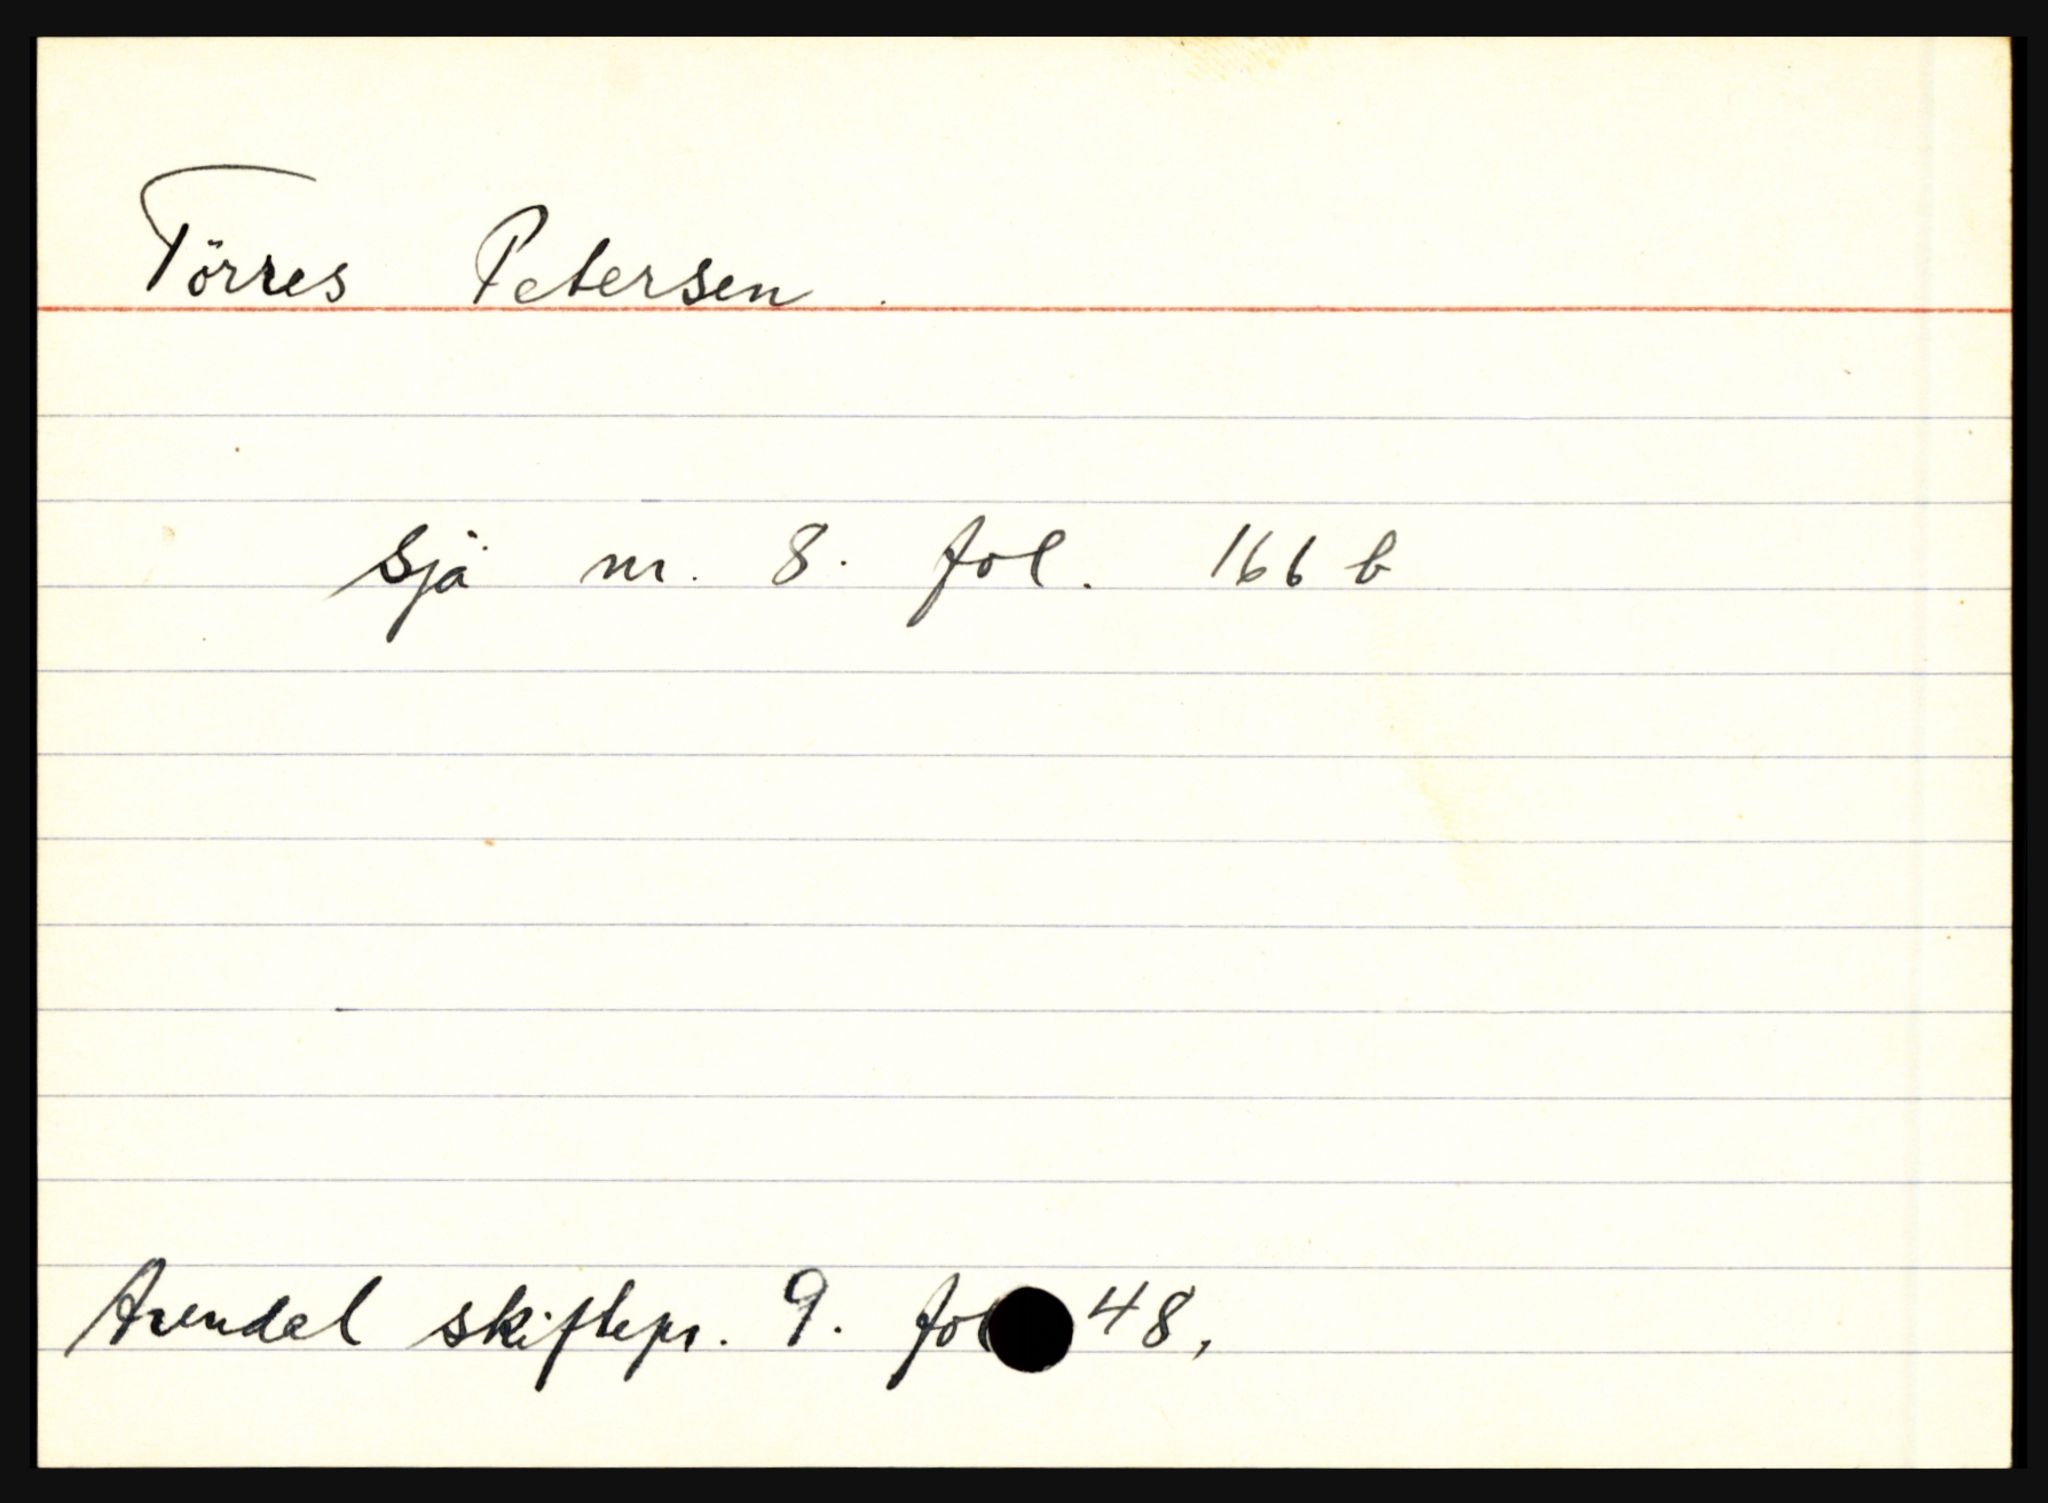 Törres Petersen.
sjå nr. 8. fol. 166 b
Arendal skiftepr. 9. fol 48,